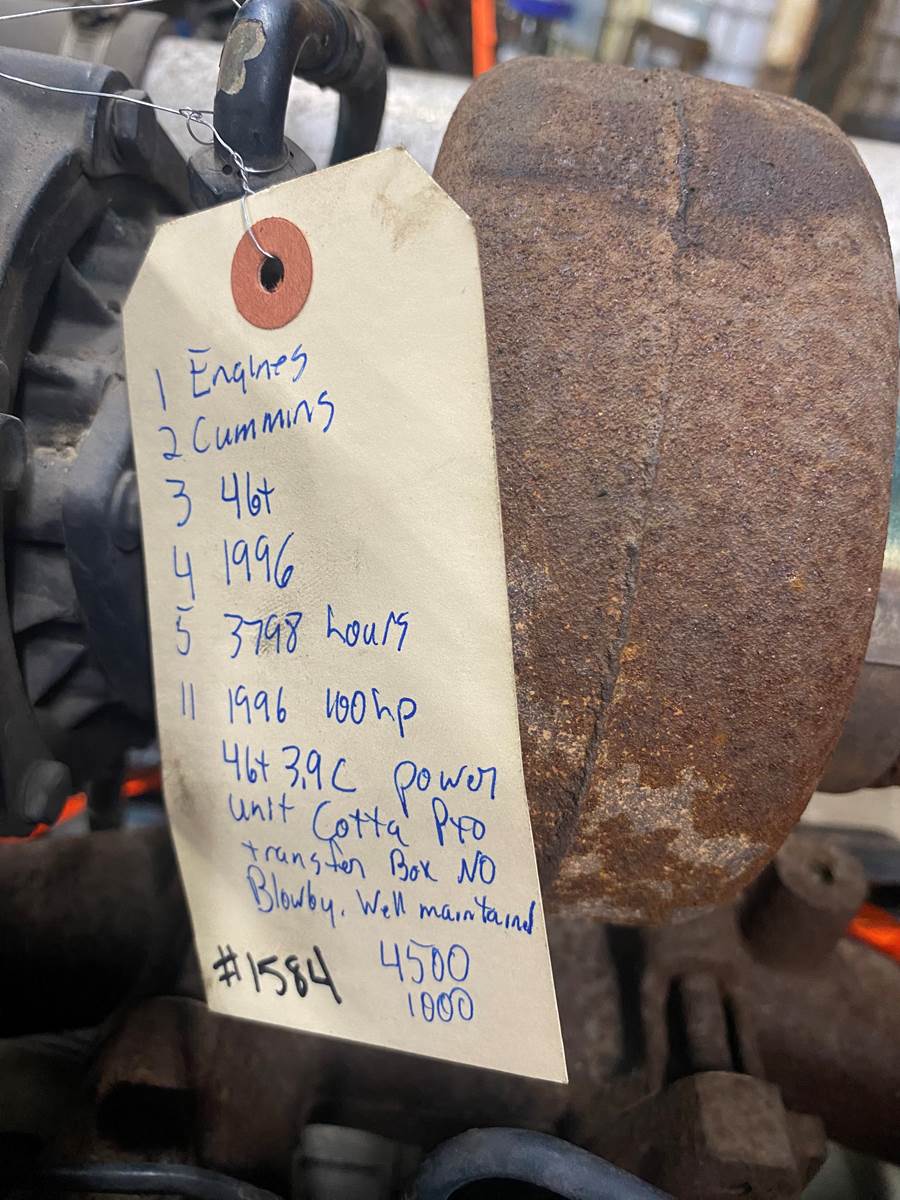 1 Engines
2 Cummins
3 4bt
4 1996
5 3798 hours
11 1996 100hp
4bt 3.9 C power
unit Cotta Pto
transfer Box NO
Blowby. Well maintaind
#1584 4500
1000